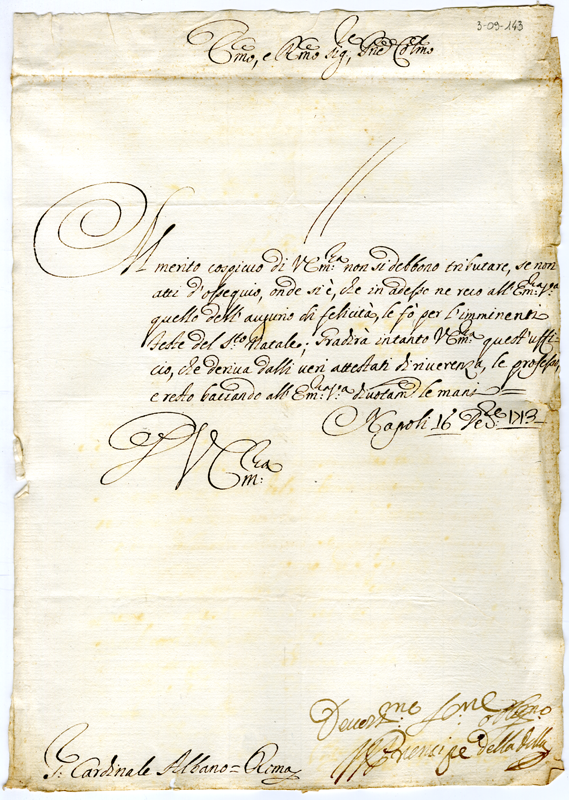 3-09-143
Emo, e Rmo Sig.re Pne Colmo
Al merito cospicuo di V Em:za non si debbono tributare, se non
atti d'ossequio, onde si è, che in adesso ne reco all'Em:za V.ra
quello dell'augurio di felicità, le fò per l'imminenti
feste del S.to Natale; Gradirà intanto V Em:za quest'uffi=
cio, che deriva dalli veri attestati di riverenza, le professo,
e resto baciando all'Em:za V.ra divotam.te le mani
Napoli 16 De.Xbre 1713
D V Em:za
Devot.mo Ser.re oblig.mo
Il Prencipe della Villa
S: Cardinale Albano = Roma